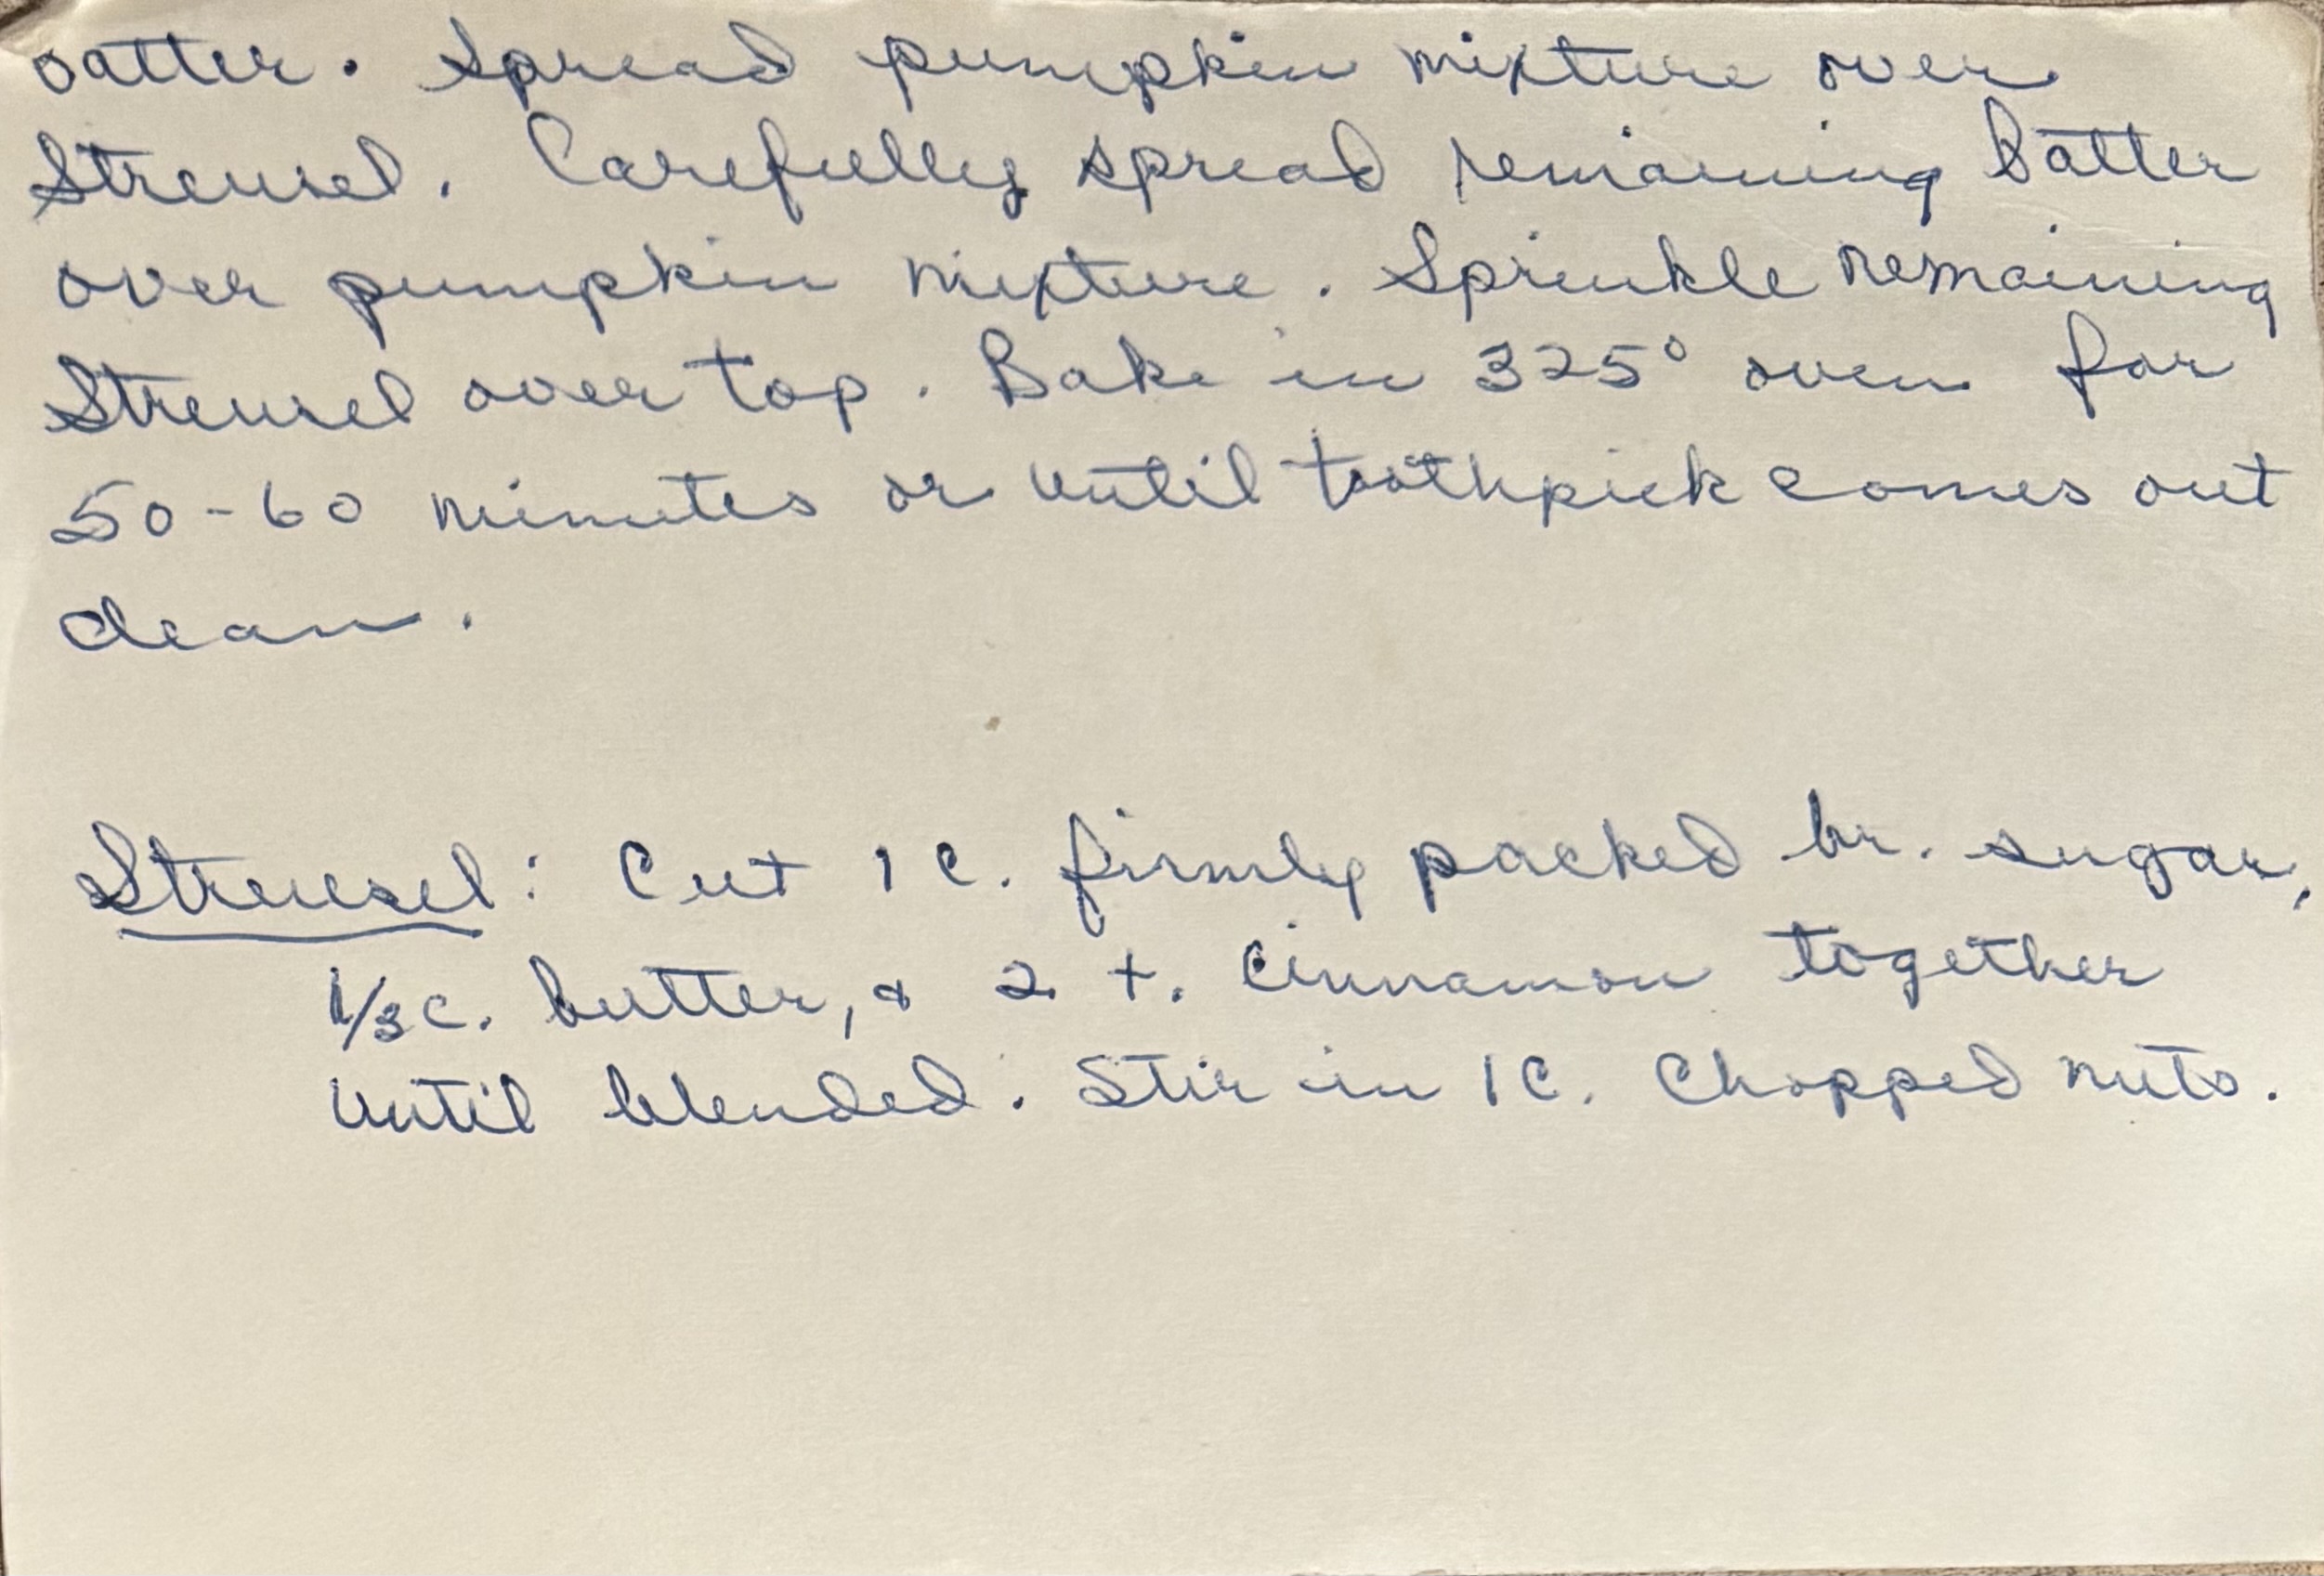 batter. Spread pumpkin mixture over
Streusel. Carefully spread remaining batter
over pumpkin mixture. Sprinkle remaining
Streusel over top. Bake in 325° oven for
50-60 minutes or until toothpick comes out
clean.
Streusel: Cut 1 C. firmly packed br. sugar,
1/3 c. butter, & 2 t. Cinnamon together
until blended. Stir in 1 C. Chopped nuts.